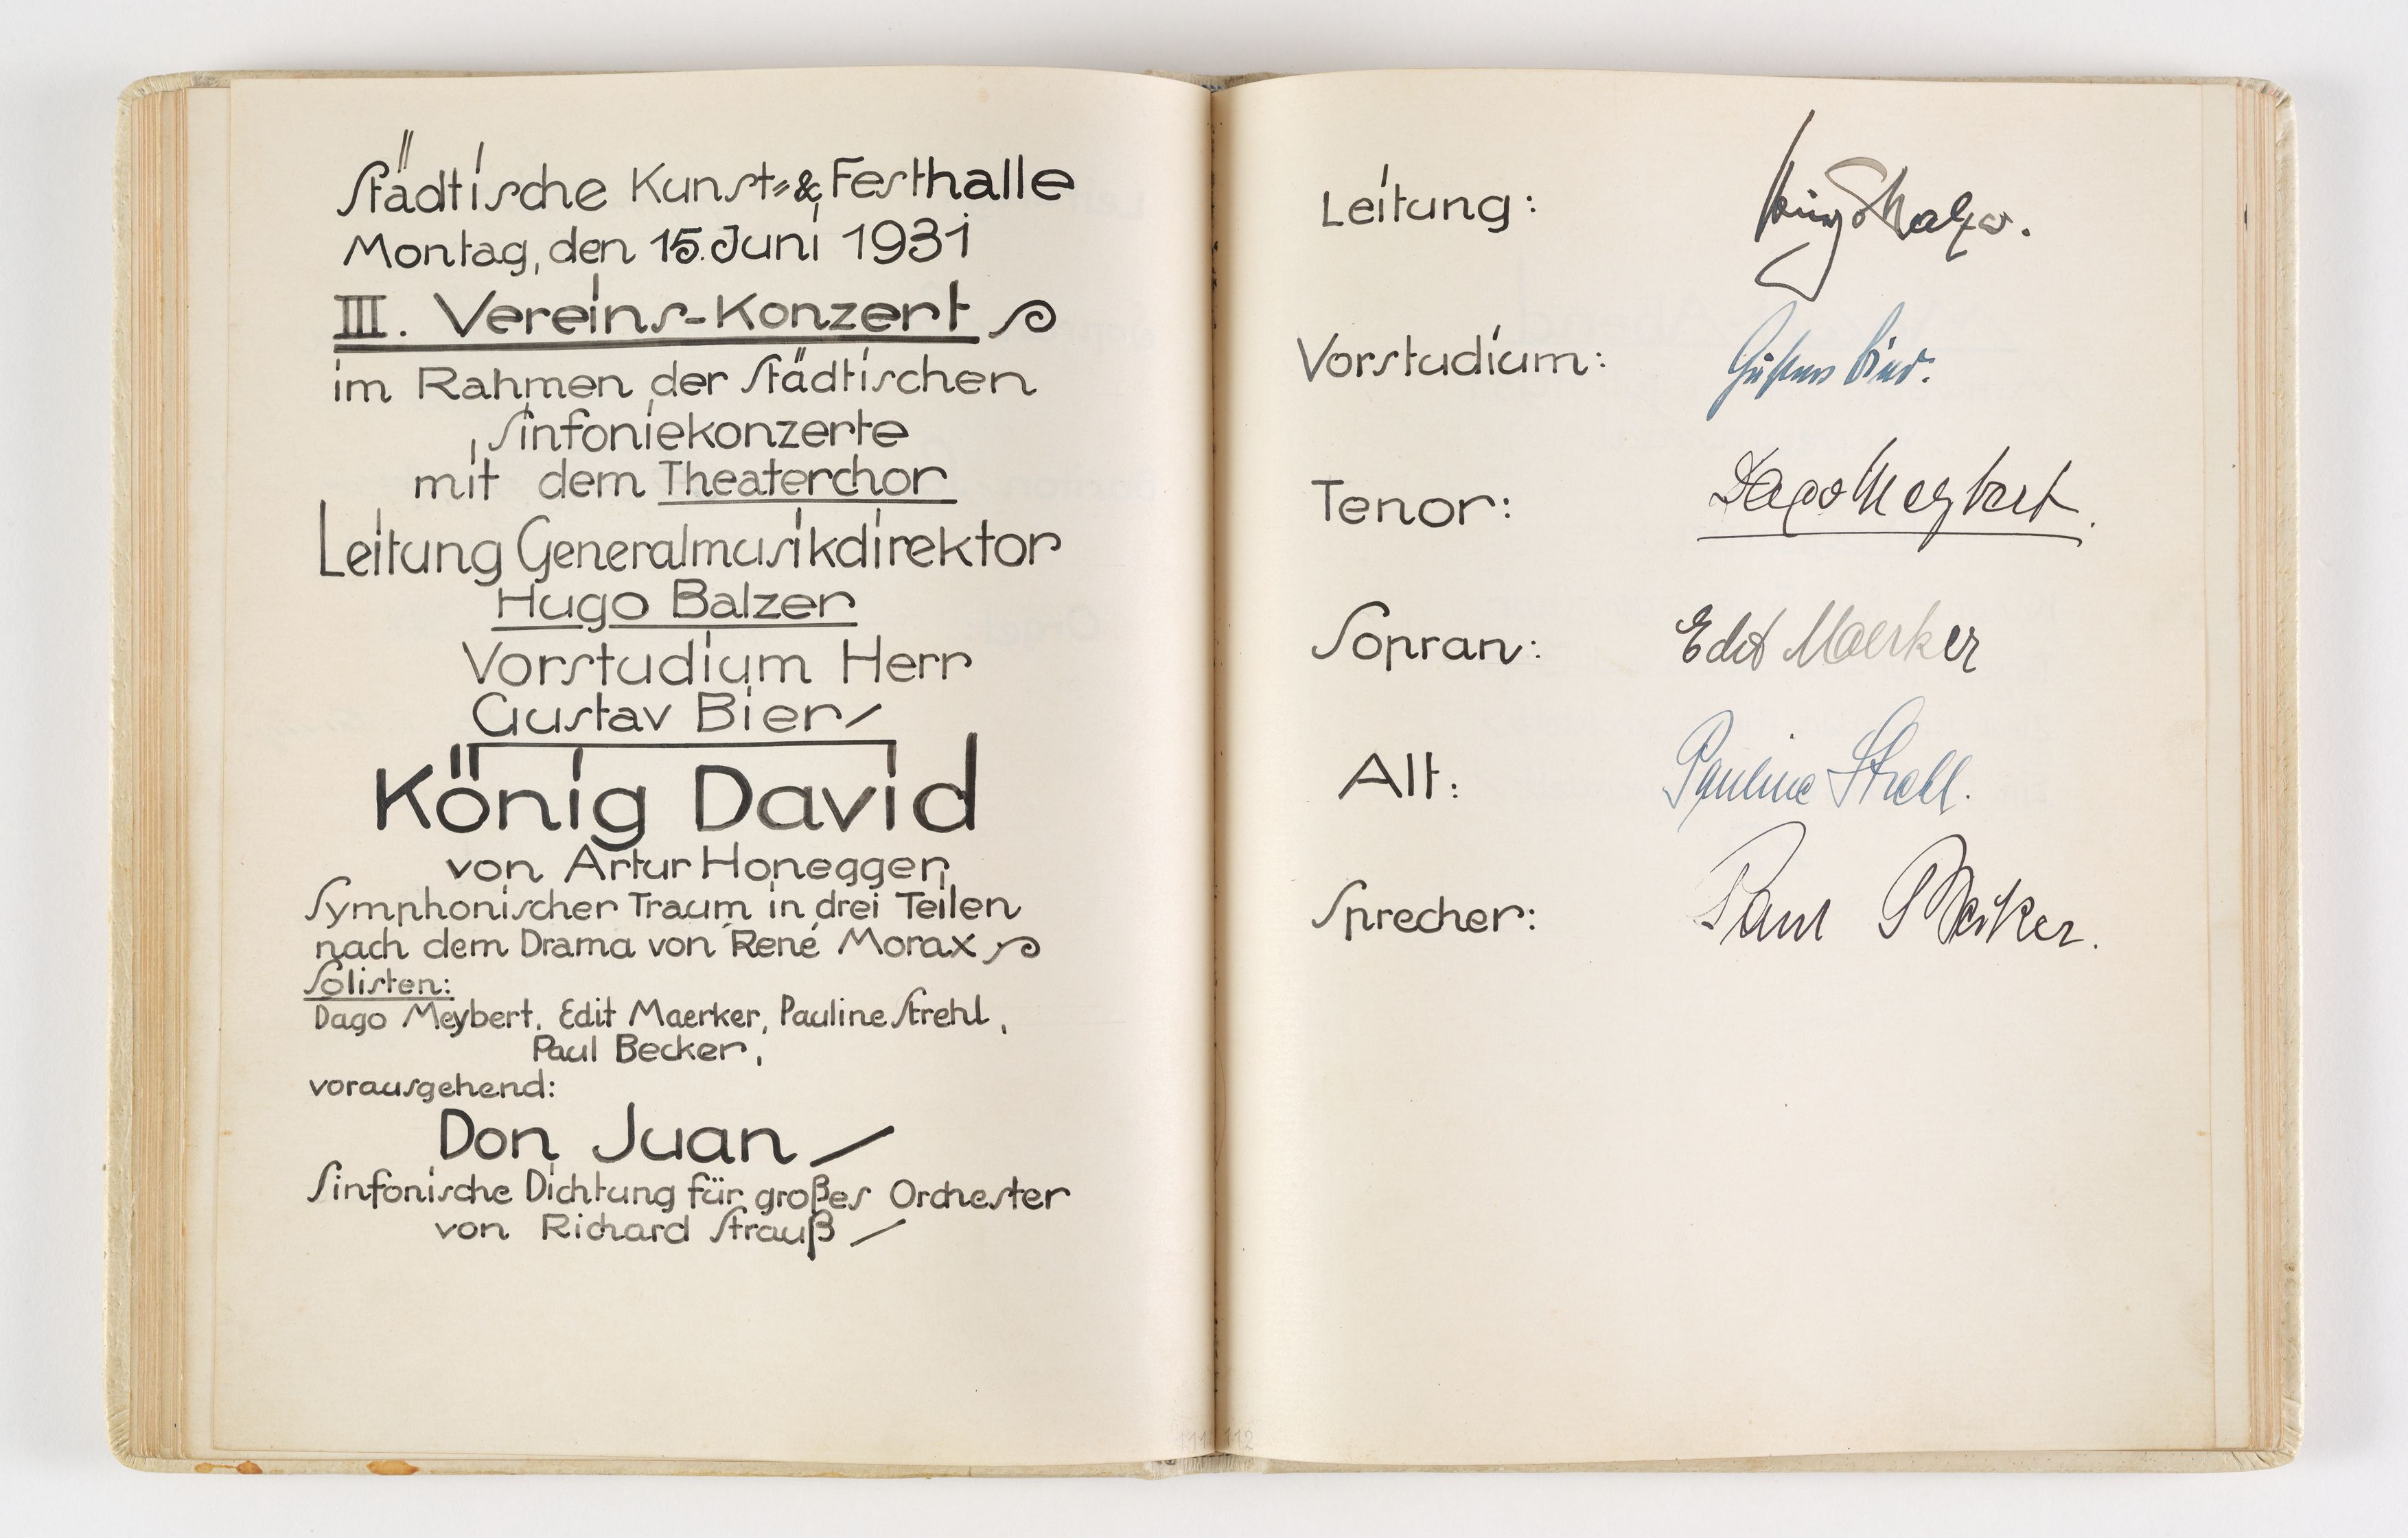 Städtische Kunst= & Festhalle
Montag, den 15. Juni 1931
III. Vereins-Konzert
im Rahmen der Städtischen
Sinfoniekonzerte
mit dem Theaterchor
Leitung Generalmusikdirektor
Hugo Balzer
Vorstudium Herr
Gustav Bier
König David
von Artur Honegger,
Symphonischer Traum in drei Teilen
nach dem Drama von René Morax
Solisten:
Dago Meybert, Edit Maerker, Pauline Strehl,
Paul Becker,
vorausgehend:
Don Juan
Sinfonische Dichtung für großes Orchester
von Richard Strauß
111
Leitung: Hugo Balzer.
Vorstudium: Gustav Bier.
Tenor: Dago Meybert.
Sopran: Edit Maerker
Alt: Pauline Strehl.
Sprecher: Paul Becker.
112